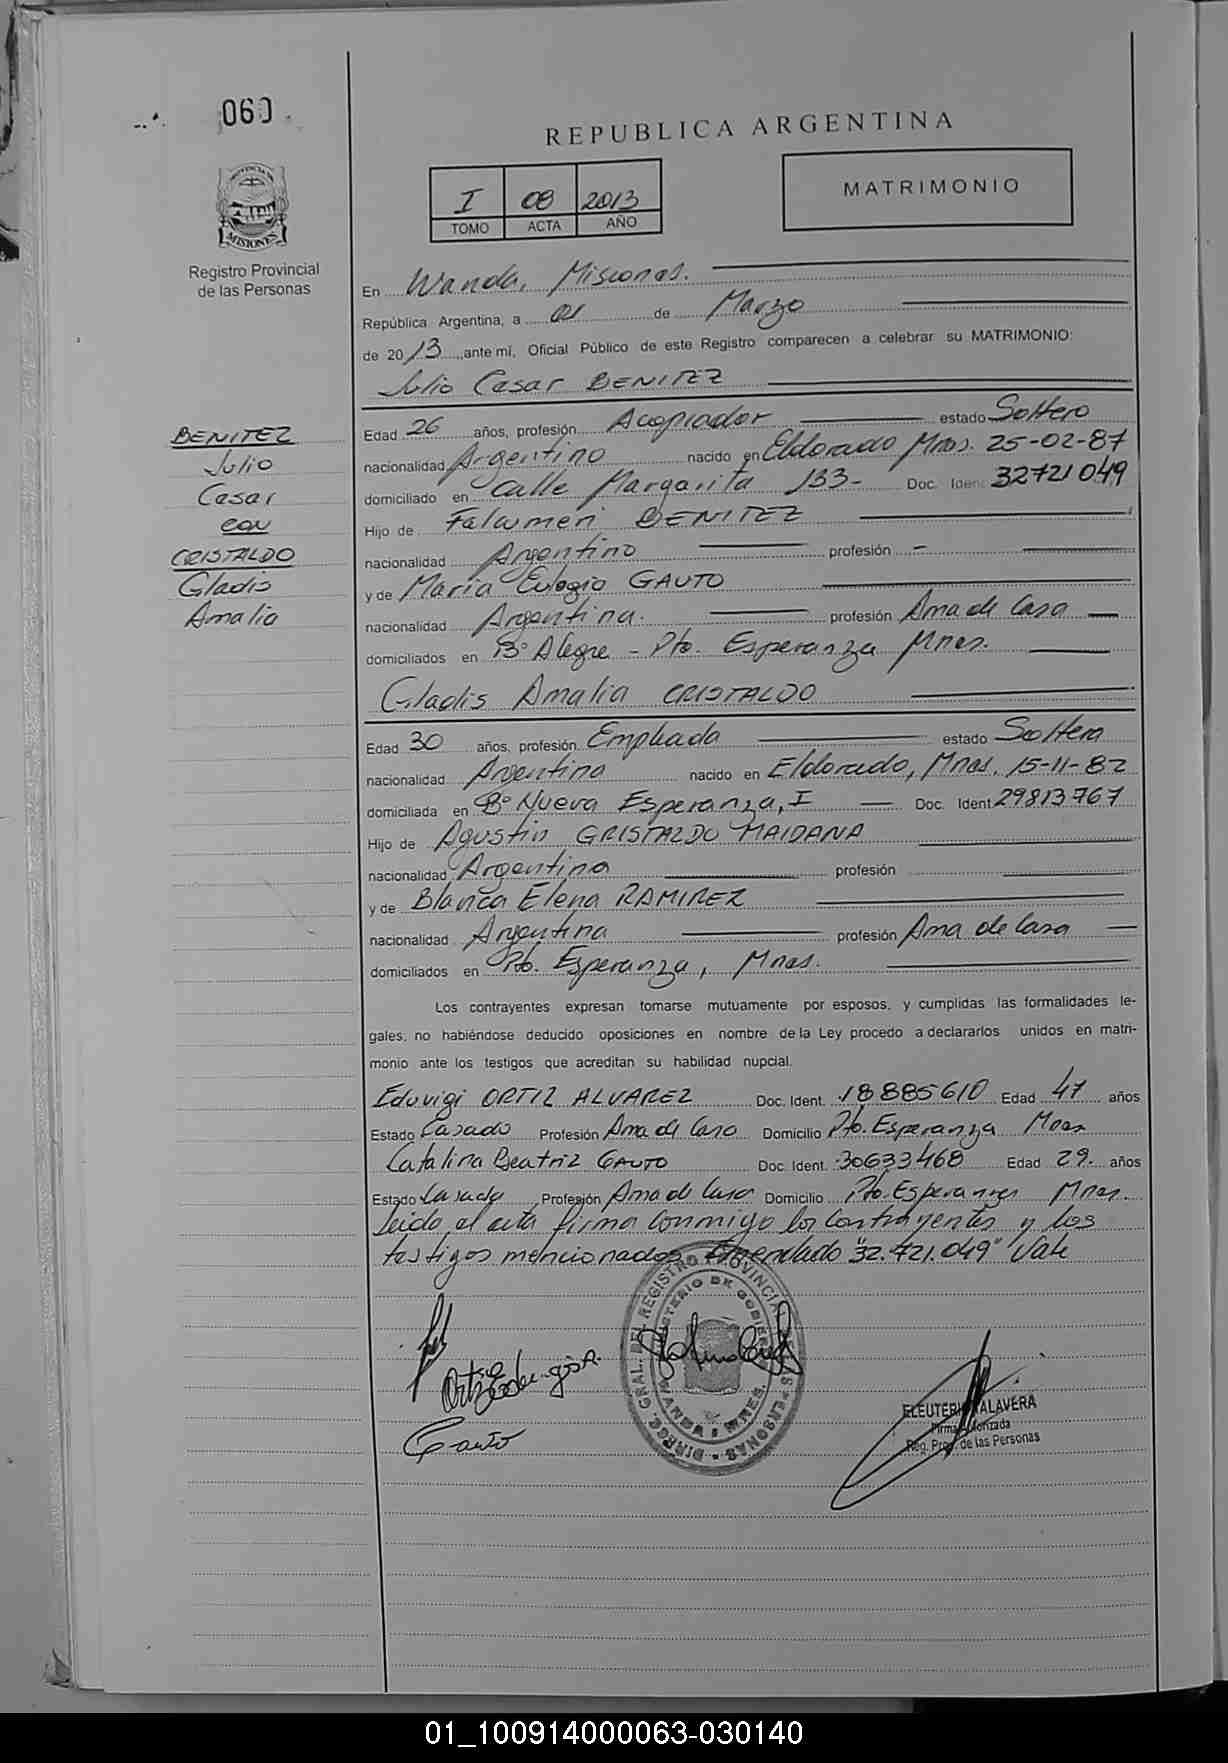 060
REPUBLICA ARGENTINA
I 08 2013
TOMO ACTA AÑO
MATRIMONIO
PROVINCIA DE
MISIONES
Registro Provincial
de las Personas
En Wanda, Misiones.
República Argentina, a 01 de Marzo
de 2013, ante mí, Oficial Público de este Registro comparecen a celebrar su MATRIMONIO:
Julio Cesar BENITEZ
BENITEZ
Julio
Cesar
con
CRISTALDO
Gladis
Amalia
Edad 26 años, profesión Acopiador estado Soltero
nacionalidad Argentino nacido en Eldorado Mnes. 25-02-87
domiciliado en Calle Margarita 133- Doc. Ident. 32721049
Hijo de Falaumeri BENITEZ
nacionalidad Argentino profesión -
y de María Eulogio GAUTO
nacionalidad Argentina. profesión Ama de Casa
domiciliados en B° Alegre - Pto. Esperanza Mnes.
Gladis Amalia CRISTALDO
Edad 30 años, profesión Empleada estado Soltera
nacionalidad Argentina nacido en Eldorado, Mnes. 15-11-82
domiciliada en B° Nueva Esperanza, I Doc. Ident 29813767
Hijo de Agustin GRISTALDO MAIDANA
nacionalidad Argentina profesión
y de Blanca Elena RAMIREZ
nacionalidad Argentina profesión Ama de Casa
domiciliados en Pto. Esperanza, Mnes.
Los contrayentes expresan tomarse mutuamente por esposos, y cumplidas las formalidades le-
gales, no habiéndose deducido oposiciones en nombre de la Ley procedo a declararlos unidos en matri-
monio ante los testigos que acreditan su habilidad nupcial.
Eduvigi ORTIZ ALVAREZ Doc. Ident. 18885610 Edad 47 años
Estado Casado Profesión Ama de Casa Domicilio Pto. Esperanza Mnes
Catalina Beatriz GAUTO Doc. Ident. 30633468 Edad 29. años
Estado Casada Profesión Ama de Casa Domicilio Pto. Esperanza Mnes.
Leido el acta firma conmigo los contrayentes y los
testigos mencionados Enmendado "32.721.049" Vale
DIREC. GRAL. DEL REGISTRO PROVINCIAL DE LAS PERSONAS
MINISTERIO DE GOBIERNO
WANDA MNES.
Gauto
ELEUTERIO TALAVERA
Firma Autorizada
Reg. Prov. de las Personas
01_100914000063-030140